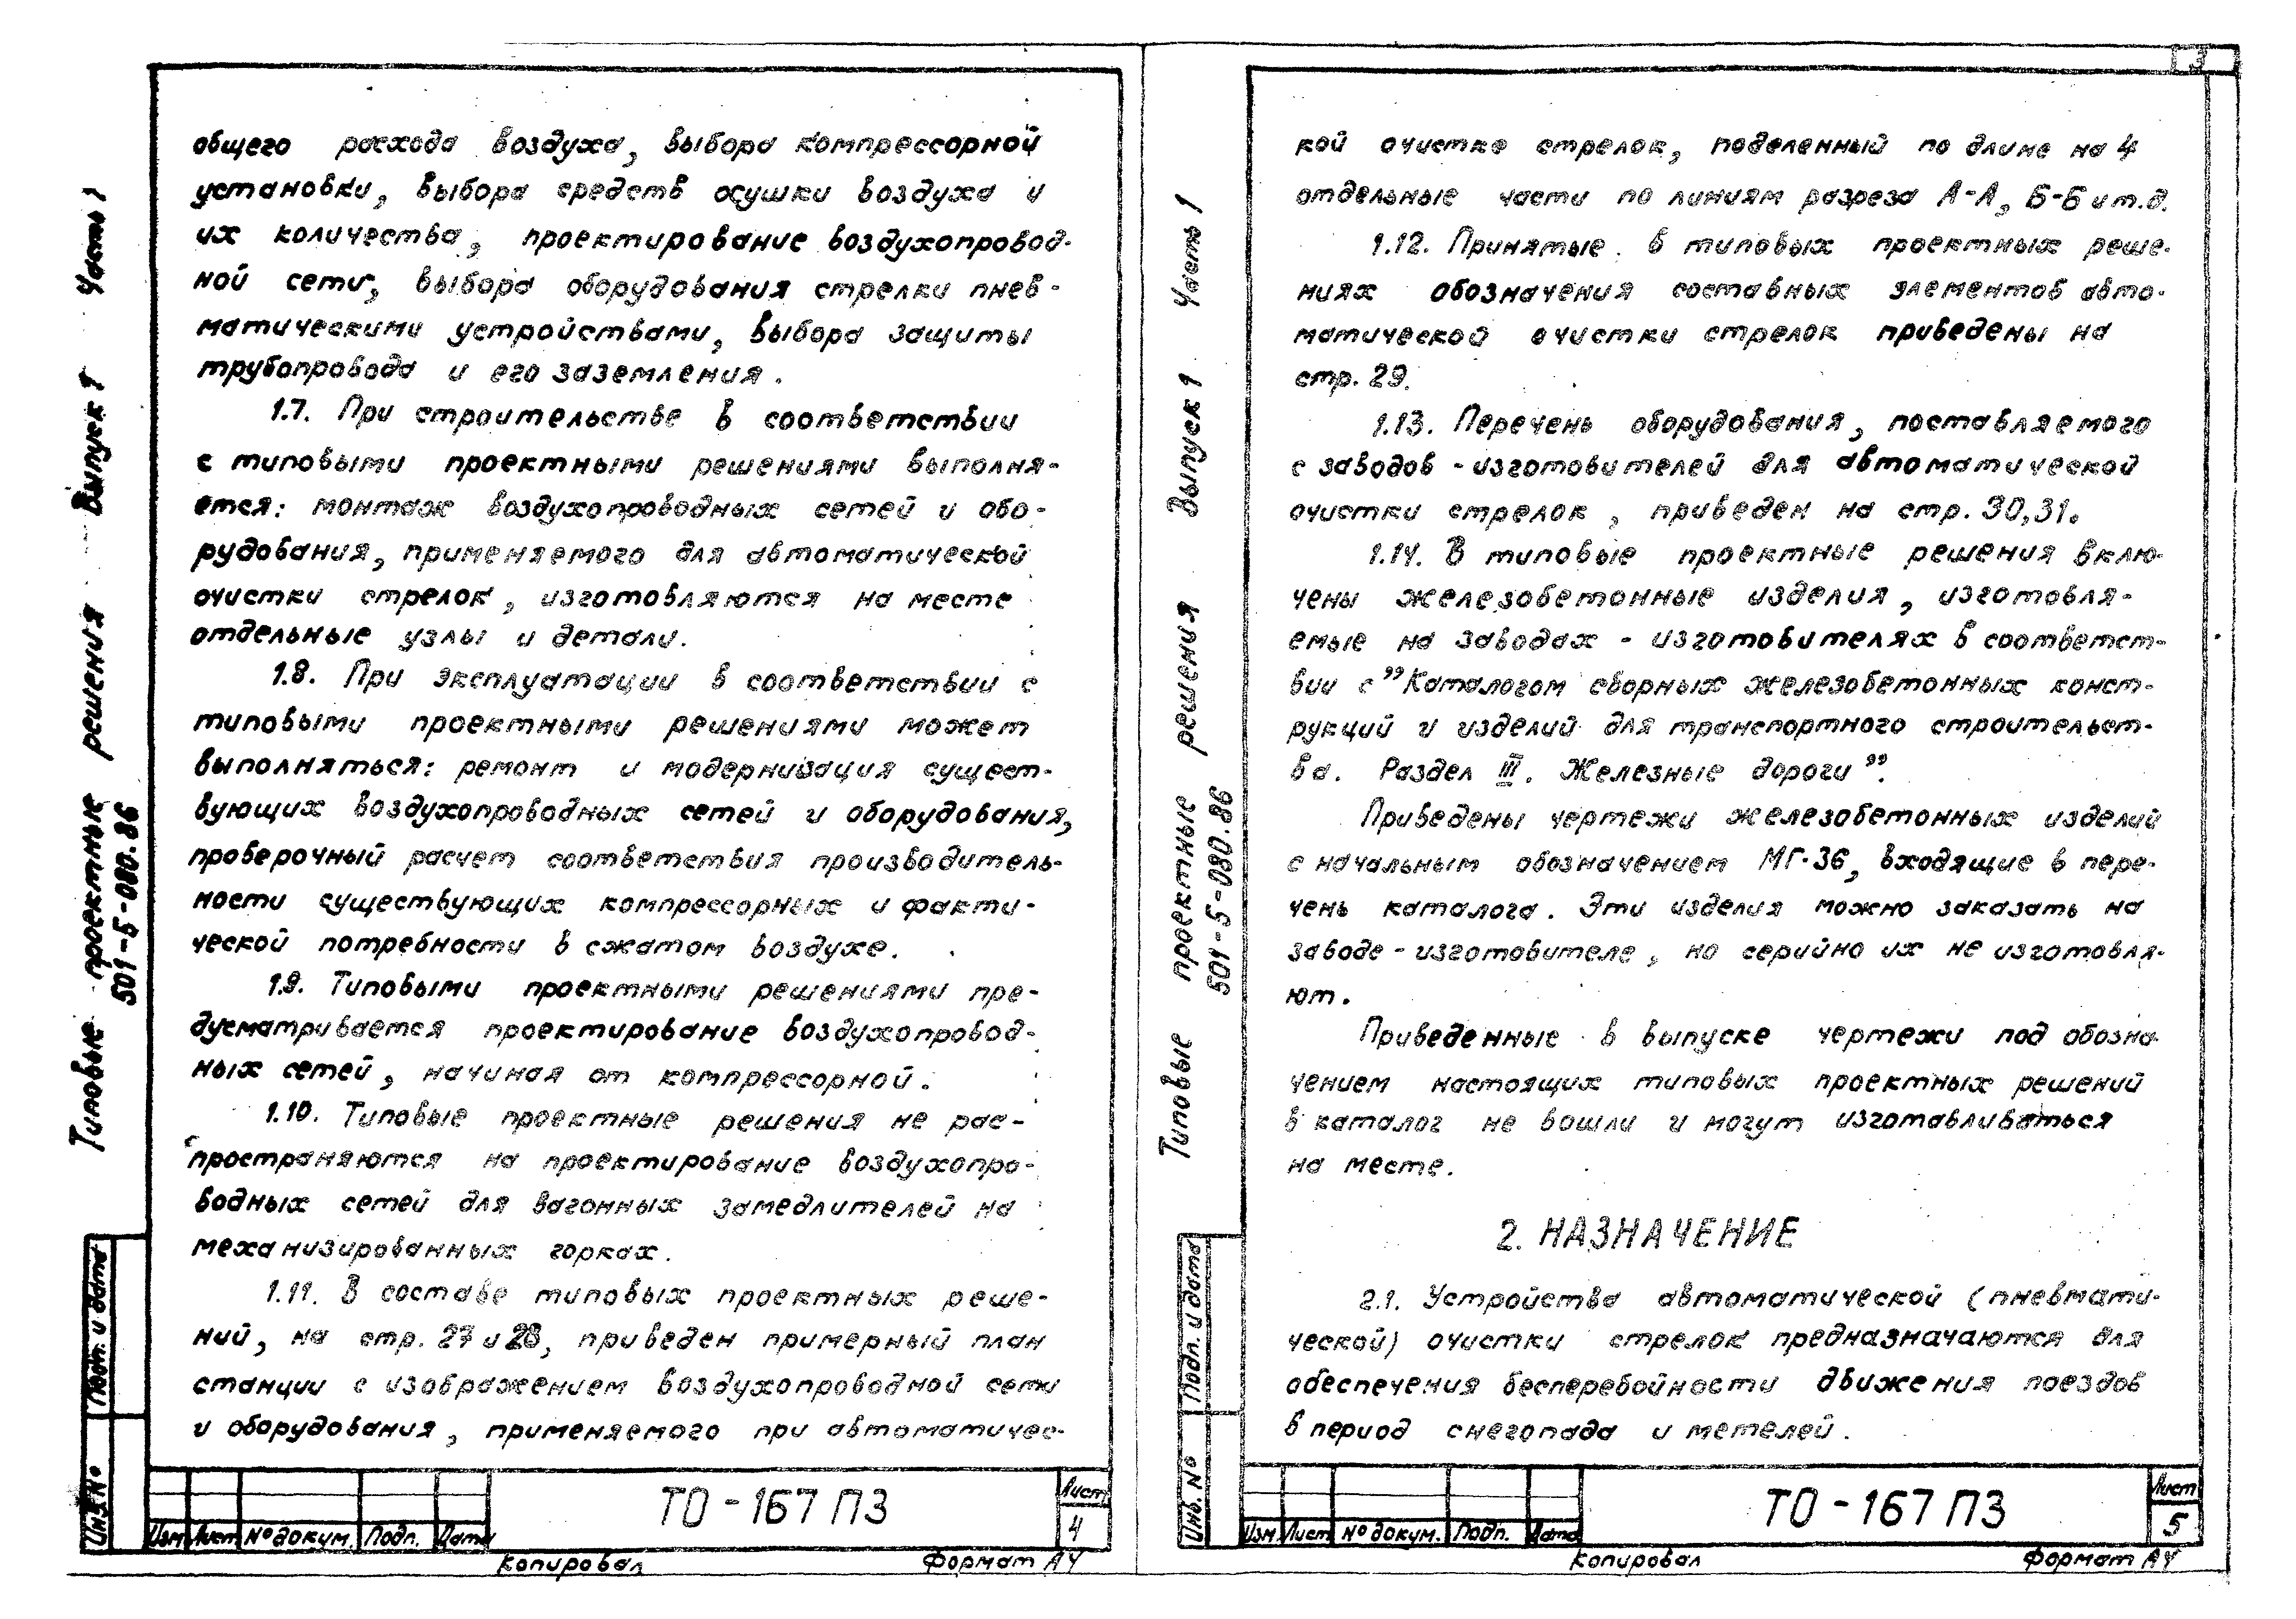 общего расхода воздуха, выбора компрессорной
установки, выбора средств осушки воздуха и
их количества, проектирование воздухопровод-
ной сети, выбора оборудования стрелки пнев-
матическими устройствами, выбора защиты
трубопровода и его заземления.
1.7. При строительстве в соответствии
с типовыми проектными решениями выполня-
ется: монтаж воздухопроводных сетей и обо-
рудования, применяемого для автоматической
очистки стрелок, изготовляются на месте
отдельные узлы и детали.
1.8. При эксплуатации в соответствии с
типовыми проектными решениями может
выполняться: ремонт и модернизация сущест-
вующих воздухопроводных сетей и оборудования,
проверочный расчет соответствия производитель-
ности существующих компрессорных и факти-
ческой потребности в сжатом воздухе.
1.9. Типовыми проектными решениями пре-
дусматривается проектирование воздухопровод-
ных сетей, начиная от компрессорной.
1.10. Типовые проектные решения не рас-
пространяются на проектирование воздухопро-
водных сетей для вагонных замедлителей на
механизированных горках.
1.11. В составе типовых проектных реше-
ний, на стр. 27 и 28, приведен примерный план
станции с изображением воздухопроводной сети
и оборудования, применяемого при автоматичес-
Типовые проектные решения Выпуск 1 Часть 1
501-5-080.86
Подп. и дата
Инв. №
Изм. Лист № докум. Подп. Дата
ТО-167 ПЗ
Лист
4
Копировал
Формат А4
3
кой очистке стрелок, поделенный по длине на 4
отдельные части по линиям разреза А-А, Б-Б и т.д.
1.12. Принятые в типовых проектных реше-
ниях обозначения составных элементов авто-
матической очистки стрелок приведены на
стр. 29.
1.13. Перечень оборудования, поставляемого
с заводов-изготовителей для автоматической
очистки стрелок, приведен на стр. 30,31.
1.14. В типовые проектные решения вклю-
чены железобетонные изделия, изготовля-
емые на заводах-изготовителях в соответст-
вии с "Каталогом сборных железобетонных конст-
рукций и изделий для транспортного строительст-
ва. Раздел III. Железные дороги".
Приведены чертежи железобетонных изделий
с начальным обозначением МГ-36, входящие в пере-
чень каталога. Эти изделия можно заказать на
заводе-изготовителе, но серийно их не изготовля-
ют.
Приведенные в выпуске чертежи под обозна-
чением настоящих типовых проектных решений
в каталог не вошли и могут изготавливаться
на месте.
2. НАЗНАЧЕНИЕ
2.1. Устройства автоматической (пневмати-
ческой) очистки стрелок предназначаются для
обеспечения бесперебойности движения поездов
в период снегопада и метелей.
Типовые проектные решения Выпуск 1 Часть 1
501-5-080.86
Подп. и дата
Инв. №
Изм. Лист № докум. Подп. Дата
ТО-167 ПЗ
Лист
5
Копировал
Формат А4